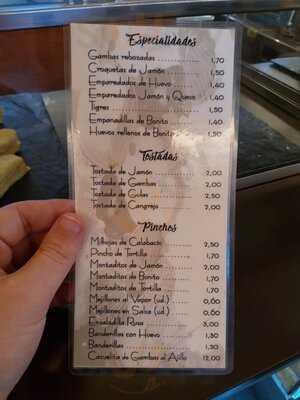 Especialidades
Gambas rebozadas 1,70
Croquetas de Jamón 1,50
Emparedados de Huevo 1,40
Emparedados Jamón y Queso 1,40
Tigres 1,50
Empanadillas de Bonito 1,40
Huevos rellenos de Bonito 1,50
Tostadas
Tostada de Jamón 2,00
Tostada de Gambas 2,00
Tostada de Gulas 2,50
Tostada de Cangrejo 2,00
Pinchos
Milhojas de Calabacín 2,50
Pincho de Tortilla 1,70
Montaditos de Jamón 2,00
Montaditos de Bonito 1,70
Montaditos de Tortilla 1,70
Mejillones al Vapor (ud.) 0,60
Mejillones en Salsa (ud.) 0,60
Ensaladilla Rusa 3,00
Banderillas con Huevo 1,50
Banderillas 1,30
Cazuelita de Gambas al Ajillo 12,00